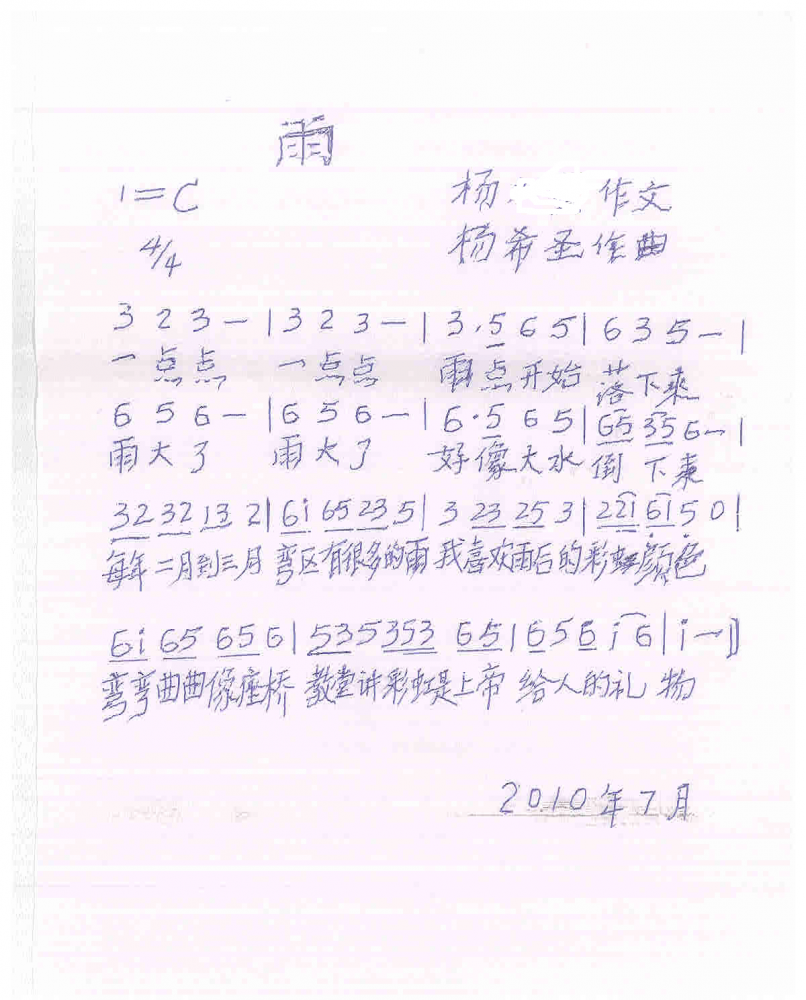 雨
1=C 杨 作文
4/4 杨希圣作曲
3 2 3 — | 3 2 3 — | 3 . 5 6 5 | 6 3 5 — |
一点点 一点点 雨点开始 落下来
6 5 6 — | 6 5 6 — | 6 · 5 6 5 | 65 35 6 — |
雨大了 雨大了 好像大水 倒 下来
32 32 13 2 | 6i 65 23 5 | 3 23 25 3 | 221 61 5 0 |
每年二月到三月 弯区有很多的雨 我喜欢雨后的彩虹颜色
6i 65 65 6 | 535353 65 | 6 5 6 i 6 | i — ‖
弯弯曲曲像座桥 教堂讲彩虹是上帝 给人的礼 物
2010年7月